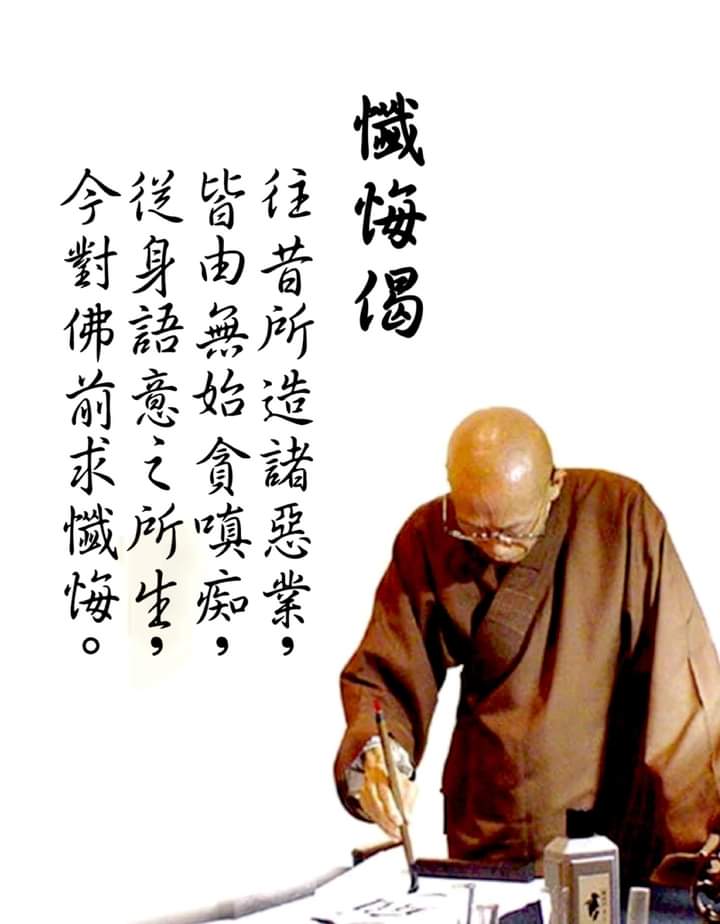 懺悔偈
往昔所造諸惡業，
皆由無始貪嗔痴，
從身語意之所生，
今對佛前求懺悔。